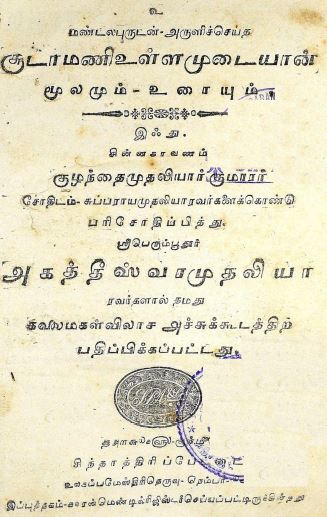 உ
மண்டலபுருடன்-அருளிச்செய்த
சூடாமணிஉள்ளமுடையான்
மூலமும்-உரையும்.
இஃது.
சின்னகாவணம்
குழந்தைமுதலியார்குமாரர்
சோதிடம்-சுப்பராயமுதலியாரவர்களைக்கொண்டு
பரிசோதிப்பித்து.
ஸ்ரீபெரும்பூதூர்
அகத்தீஸ்வரமுதலியா
ரவர்களால் தமது
கவலமகள்விலாச அச்சுக்கூடத்திற்
பதிப்பிக்கப்பட்டது.
சிந்தாத்திரிப்பேட்டை
இப்புத்தகம்-காரன்மெண்டில்ரிஜிஸ்டர்செய்யப்பட்டிருக்கின்றது